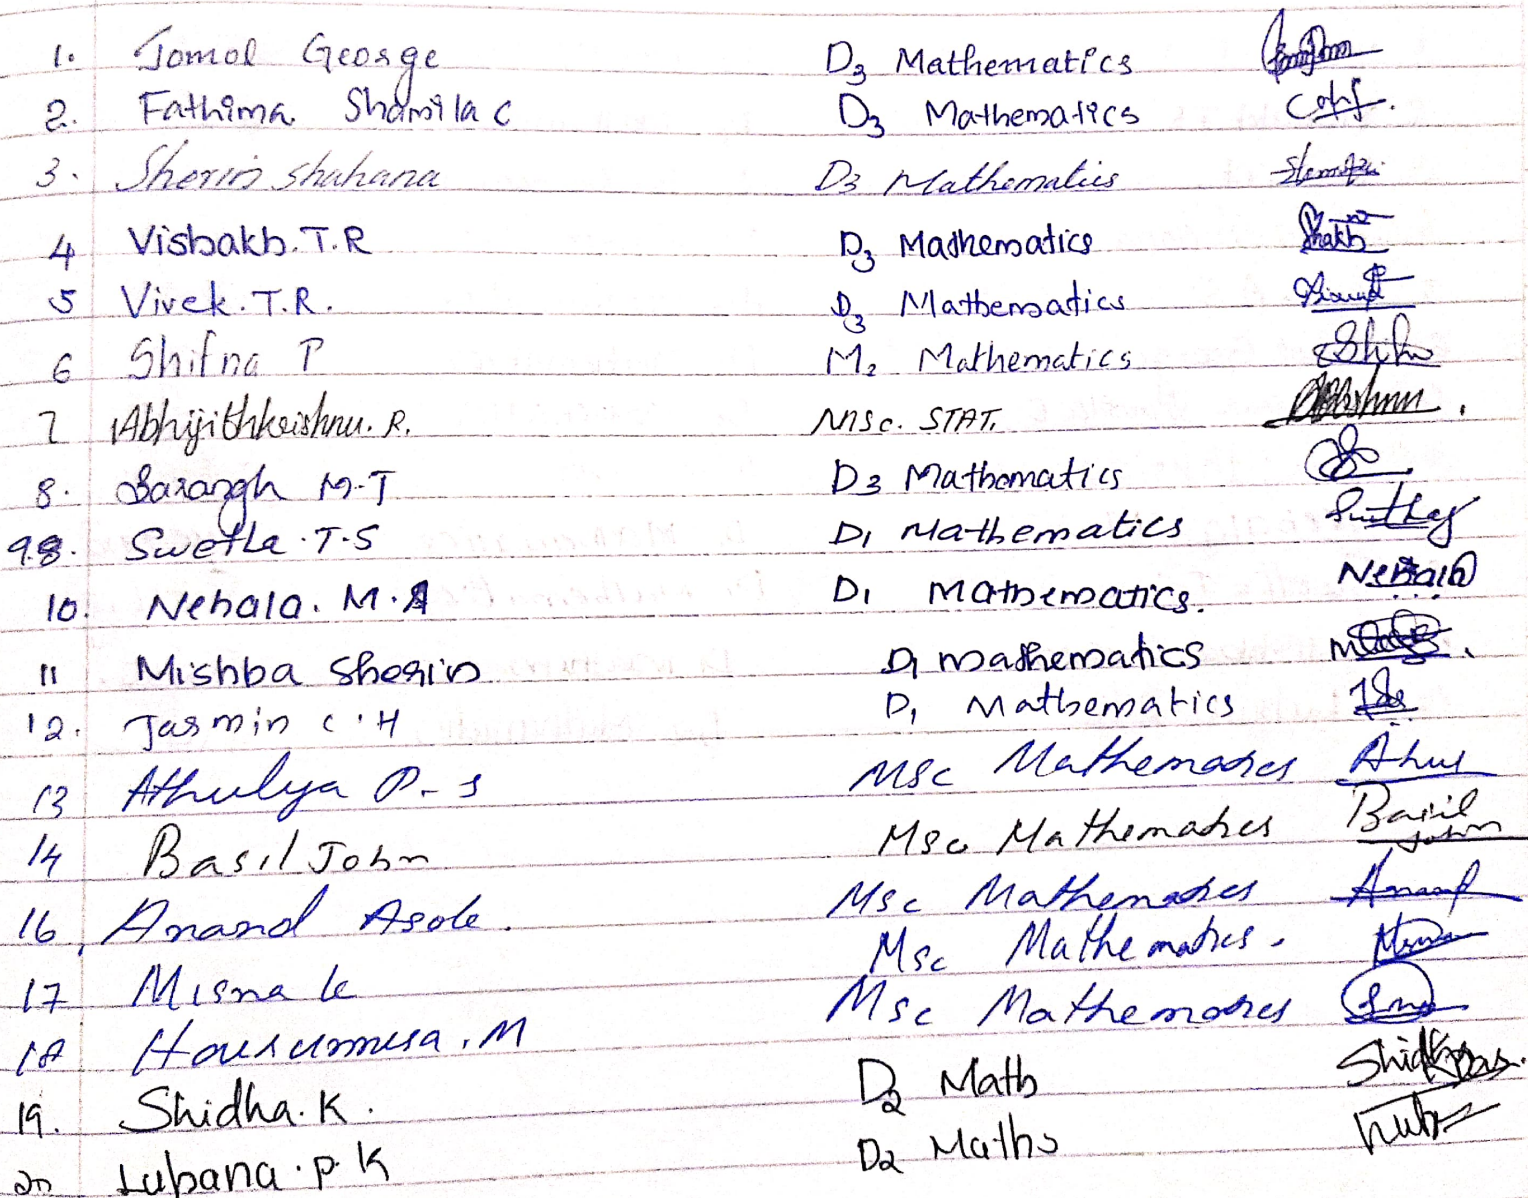 1. Jomol George D3 Mathematics
2. Fathima Shamila C D3 Mathematics
3. Sherin shahana D3 Mathematics
4 Vishakh.T.R D3 Mathematics
5 Vivek.T.R. D3 Mathematics
6 Shifna P M2 Mathematics
7 Abhijithkrishna.R. MSc. STAT.
8. Sarangh M.T D3 Mathematics
9. Swetha.T.S D1 Mathematics
10. Nehala. M. D1 Mathematics. Nehala
11 Mishba Sherin D1 mathematics
12. Jasmin C.H D1 Mathematics
13 Athulya P.S MSc Mathematics
14 Basil John MSc Mathematics Basil John
16. Anand Asok. MSc Mathematics
17 Misna k MSc Mathematics.
18 M MSc Mathematics
19. Shidha.K. D2 Math
20 Lubana.P.K D2 Maths